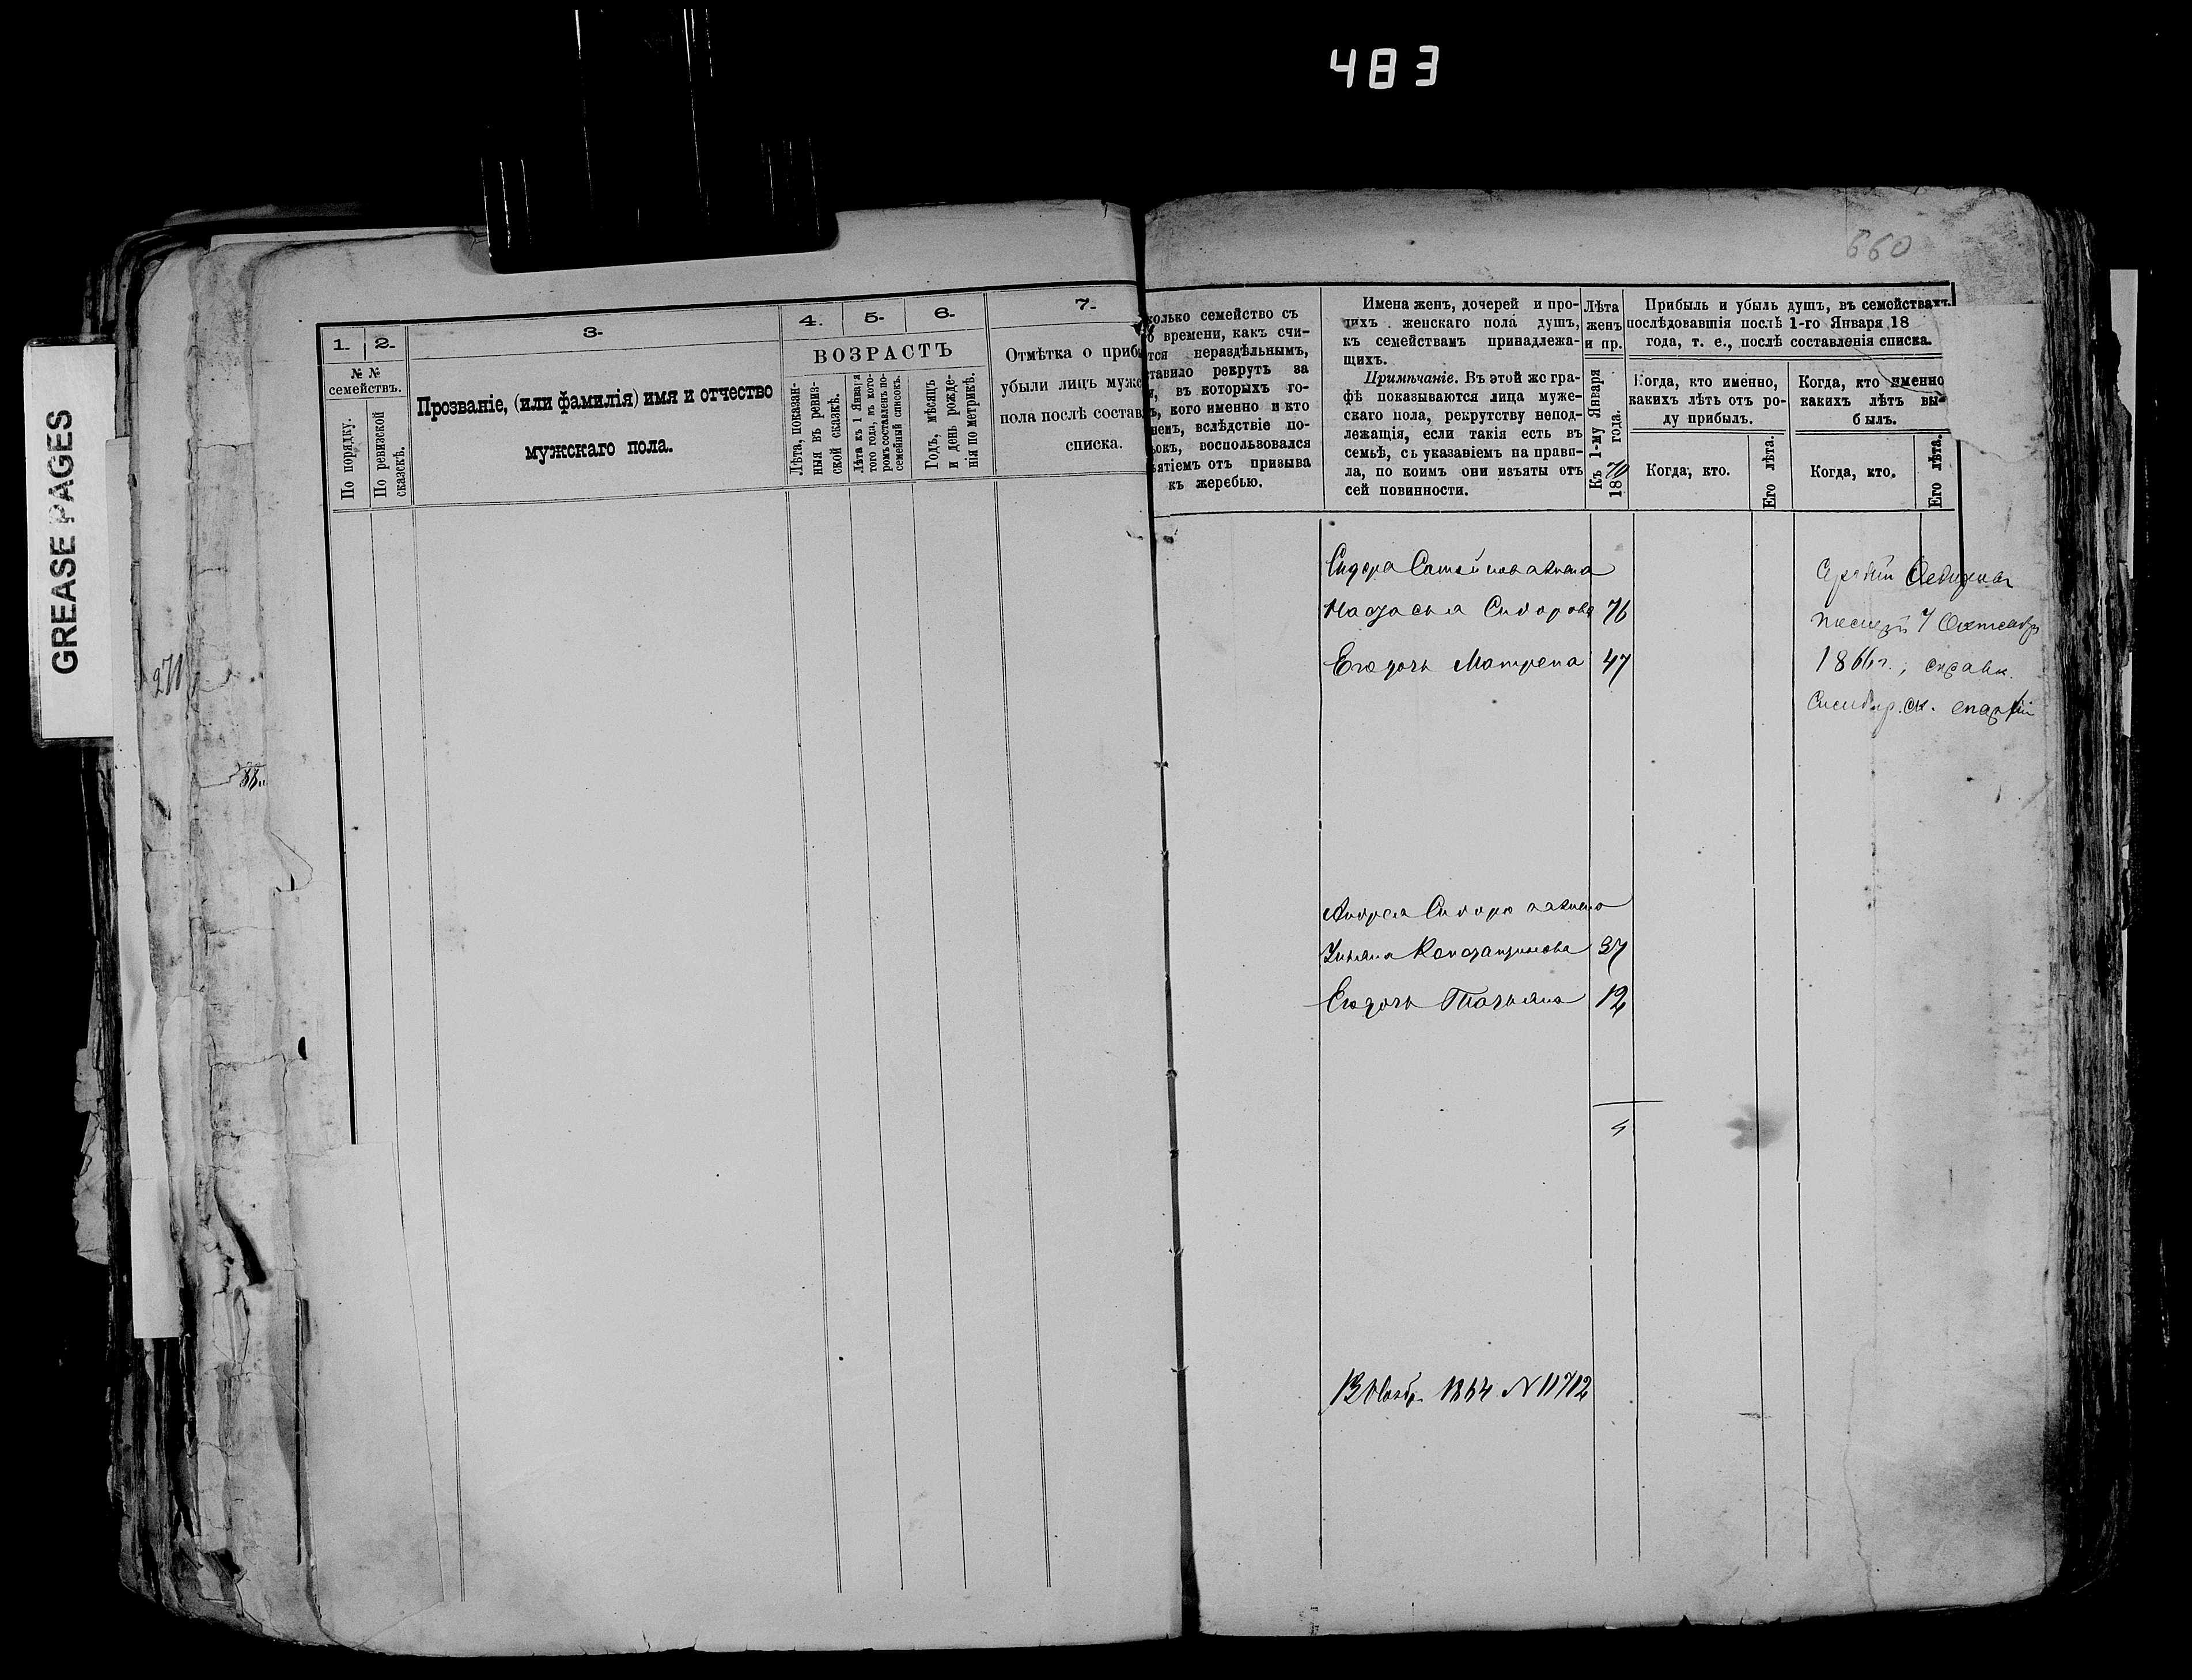 483
GREASE PAGES
271
660
1.
2.
3.
4.
5.
6.
7.
№ №
семействъ.
По порядку.
По ревизской
сказкѣ.
Прозваніе, (или фамилія) имя и отчество
мужскаго пола.
ВОЗРАСТЪ
Лѣта, показан-
ныя въ ревиз-
ской сказкѣ.
Лѣта къ 1 Января
того года, въ кото-
ромъ составленъ по-
семейный списокъ.
Годъ, мѣсяцъ
и день рожде-
нія по метрикѣ.
Отмѣтка о приб
убыли лицъ муж
пола послѣ состав
списка.
колько семейство съ
времени, какъ счи-
тся нераздѣльнымъ,
ставило рекрутъ за
въ которыхъ го-
ъ, кого именно и кто
немъ, вслѣдствіе по-
ьокъ, воспользовался
ъятіемъ отъ призыва
къ жеребью.
Имена женъ, дочерей и про-
чихъ женскаго пола душъ,
къ семействамъ принадлежа-
щихъ.
Примѣчаніе. Въ этой же гра-
фѣ показываются лица муже-
скаго пола, рекрутству непод-
лежащія, если такія есть въ
семьѣ, съ указаніемъ на прави-
ла, по коимъ они изъяты отъ
сей повинности.
Лѣта
женъ
и пр.
Къ 1-му Января
1870 года.
Прибыль и убыль душъ, въ семействахъ
послѣдовавшія послѣ 1-го Января 18
года, т. е., послѣ составленія списка.
Когда, кто именно,
какихъ лѣтъ отъ ро-
ду прибылъ.
Когда, кто именно
какихъ лѣтъ вы-
былъ.
Когда, кто.
Его лѣта.
Когда, кто.
Его лѣта.
Сидора жена
Настасья Сидорова 76
Его дочь Матрена 47
7 Октября
1866г., справк.
Симбир.ск. епархіи
Андрея Сидорова жена
Ульяна Константинова 37
Его дочь Татьяна 12
13 1864 № 11712